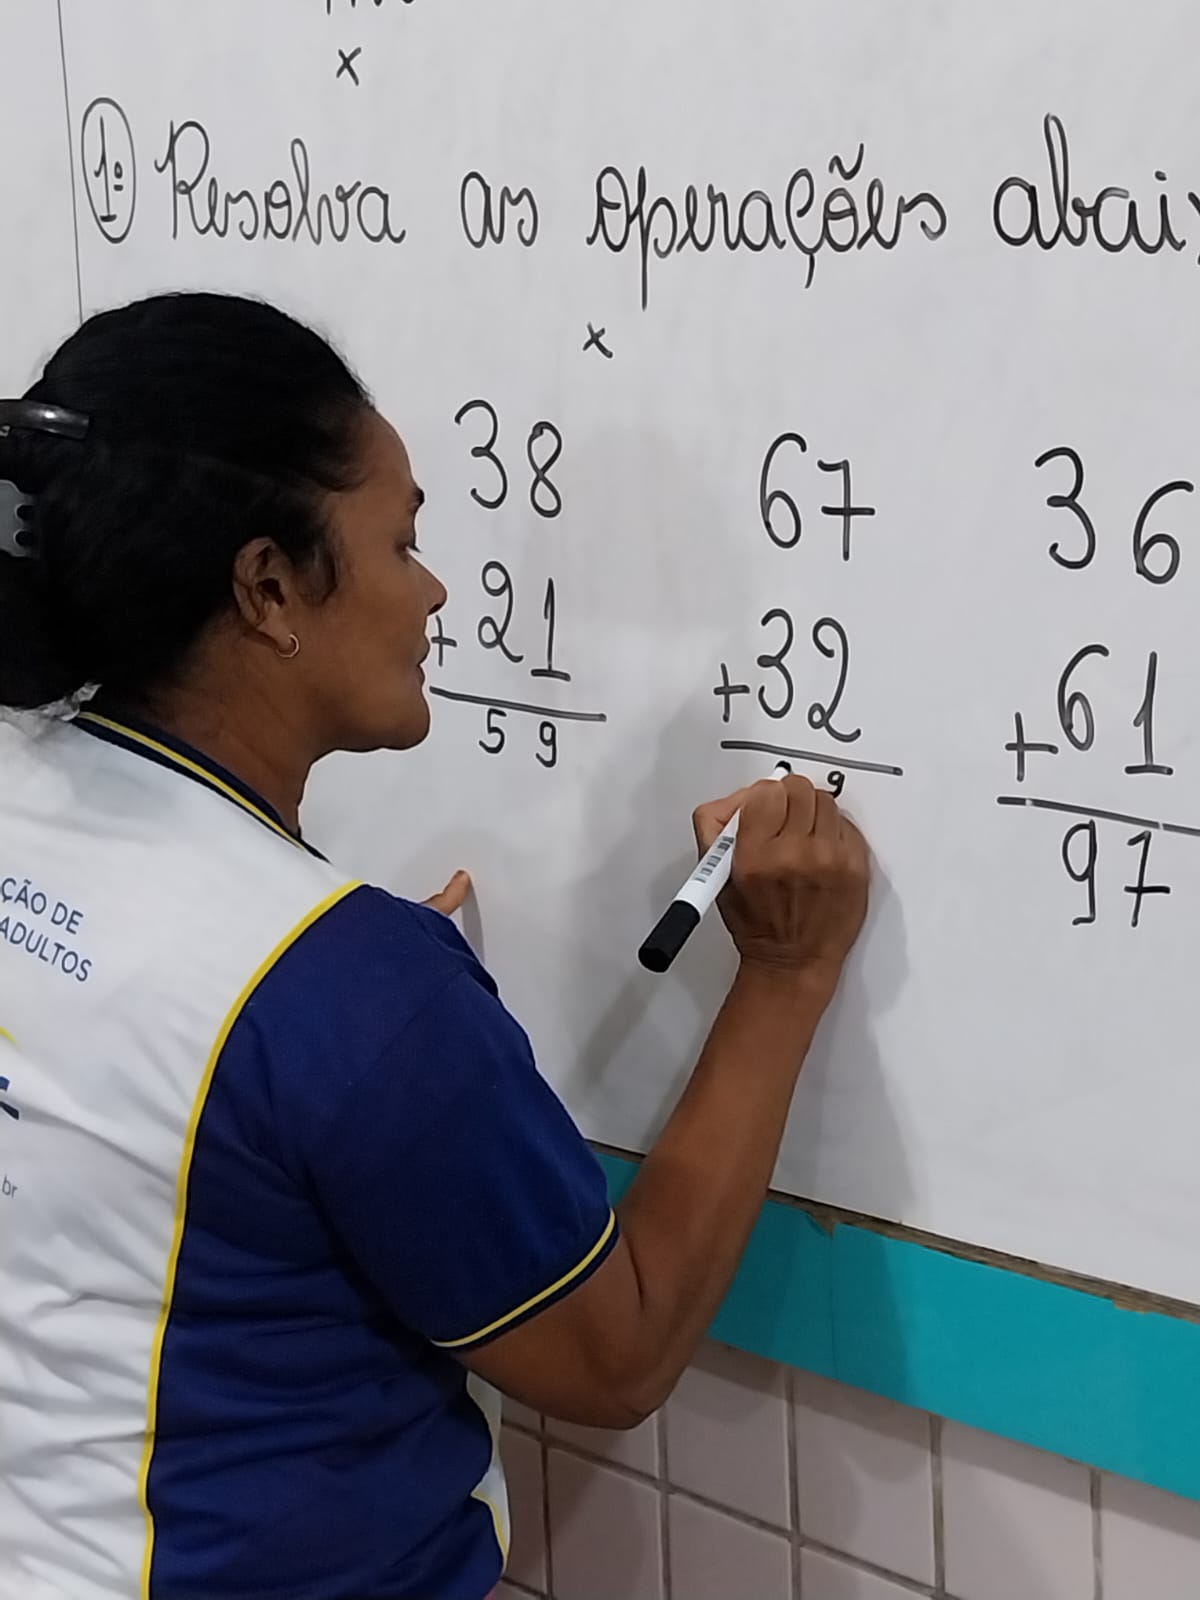 x
1º Resolva as operações abaix
x
38 67 36
+ 21 +32 +61
59 9 97
ÇÃO DE
ADULTOS
br